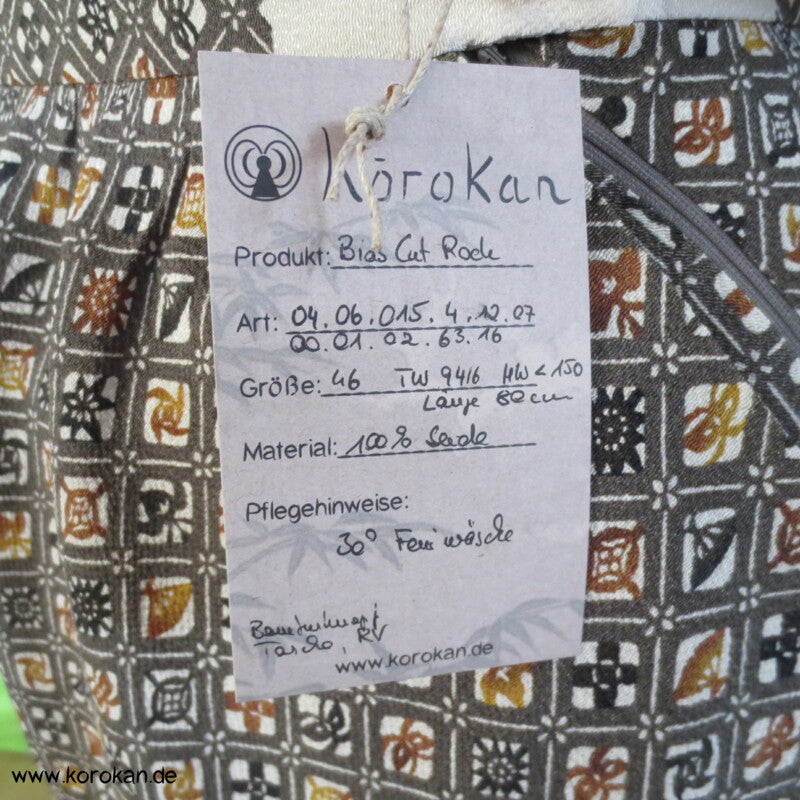 Kōrokan
Produkt: Bias Cut Rock
Art: 04.06.015.4.12.07
00.01.02.63.16
Größe: 46 TW 94/6 HW < 150
Länge 80 cm
Material: 100% Seide
Pflegehinweise:
30° Feinwäsche
Tasche, RV
www.korokan.de
www.korokan.de